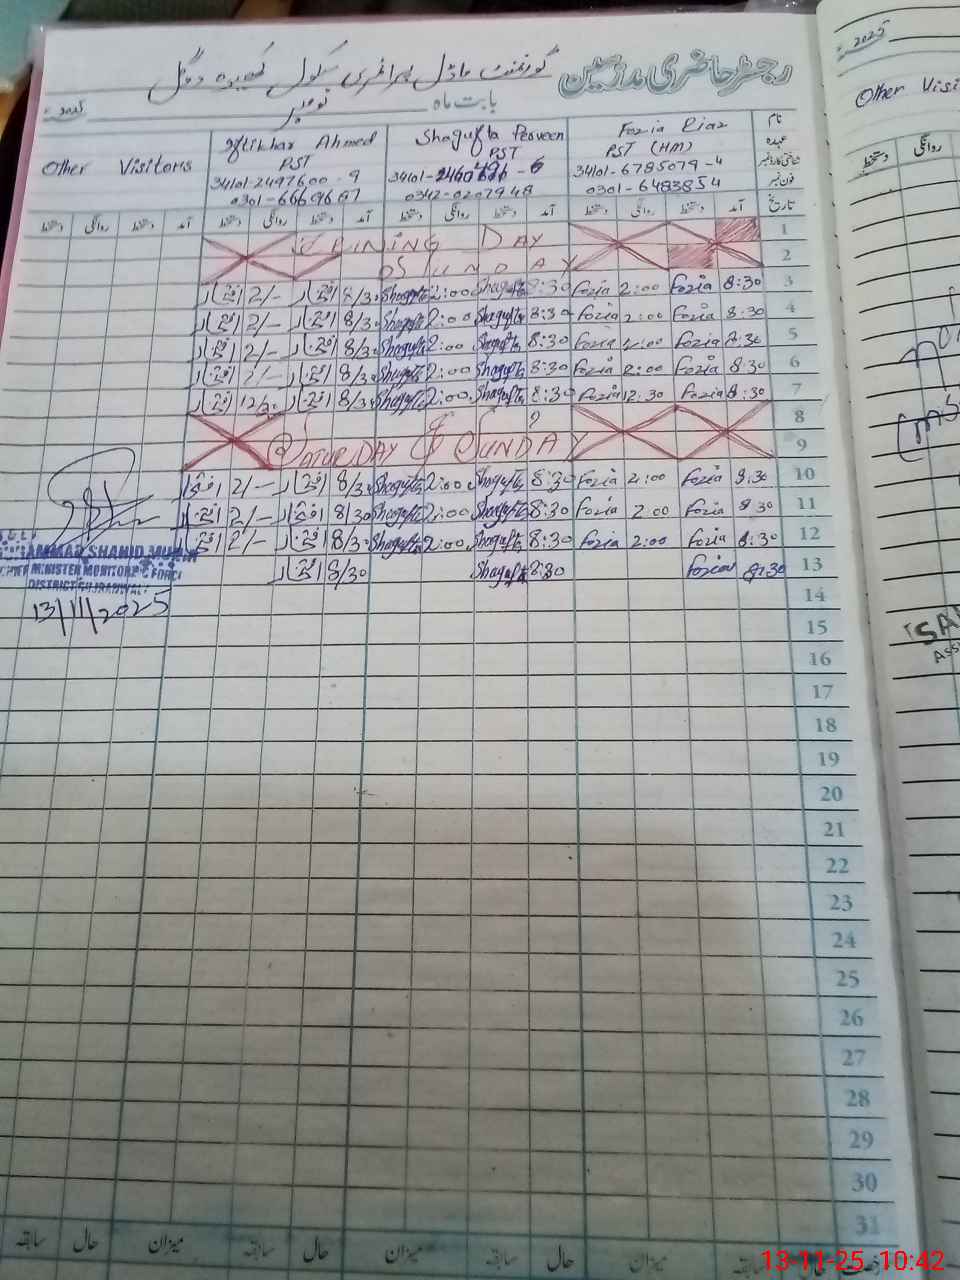 رجسٹر حاضری مدرسین
گورنمنٹ ماڈل پرائمری سکول
بابت ماہ نومبر 2025ء
نام
عہدہ
شناختی کارڈ نمبر
فون نمبر
Fozia Riaz
PST (HM)
34101-6785079-4
0301-6483854
Shagufta Perveen
PST
0342-0207948
Iftikhar Ahmed
PST
34101-2497600-9
Other Visitors
تاریخ آمد دستخط روانگی دستخط آمد دستخط روانگی دستخط آمد دستخط روانگی دستخط آمد دستخط روانگی دستخط
1 DAY
2 SUNDAY
3 8:30 Fozia 2:00 Fozia 8:30 Shagufta 2:00 Shagufta 8/30 افتخار 2/- افتخار
4 8:30 Fozia 2:00 Fozia 8:30 Shagufta 2:00 Shagufta 8/30 افتخار 2/- افتخار
5 8:30 Fozia 2:00 Fozia 8:30 Shagufta 2:00 Shagufta 8/30 افتخار 2/- افتخار
6 8:30 Fozia 2:00 Fozia 8:30 Shagufta 2:00 Shagufta 8/30 افتخار 2/- افتخار
7 8:30 Fozia 12:30 Fozia 8:30 Shagufta 2:00 Shagufta 8/30 افتخار 12/30 افتخار
8
9 SATURDAY & SUNDAY
10 8:30 Fozia 2:00 Fozia 8:30 Shagufta 2:00 Shagufta 8/30 افتخار 2/- افتخار
11 8:30 Fozia 2:00 Fozia 8:30 Shagufta 2:00 Shagufta 8/30 افتخار 2/- افتخار
12 8:30 Fozia 2:00 Fozia 8:30 Shagufta 2:00 Shagufta 8/30 افتخار 2/- افتخار
13 8:30 Fozia 8:30 Shagufta 8/30 افتخار
14
15
16
17
18
19
20
21
22
23
24
25
26
27
28
29
30
31
SHAHID
MINISTER MONITORING FORCE
DISTRICT GUJRANWALA
13/11/2025
میزان حال سابقہ میزان حال سابقہ میزان حال سابقہ
2025ء
Other Visi
روانگی دستخط
13-11-25 10:42